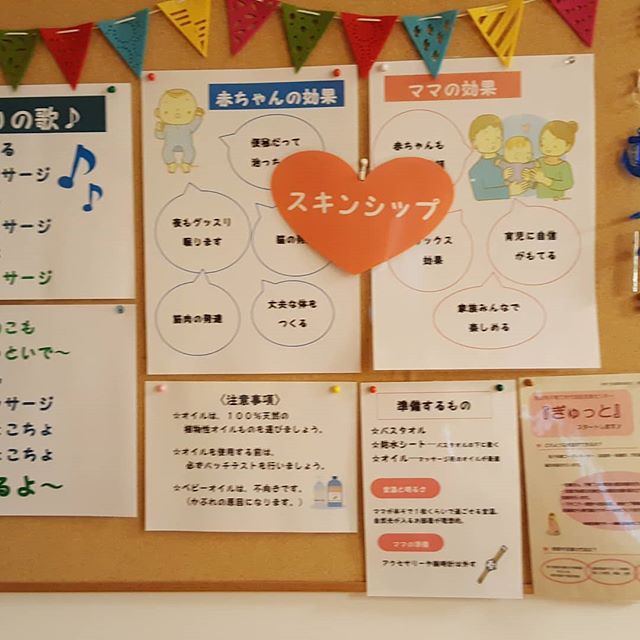 の歌♪
る
サージ
サージ
サージ
こも
といで〜
サージ
こちょ
こちょ
るよ〜
赤ちゃんの効果
便秘だって
治っち
夜もグッスリ
眠ります
脳の発
筋肉の発達
丈夫な体を
つくる
スキンシップ
ママの効果
赤ちゃんも
ックス
効果
育児に自信
がもてる
家族みんなで
楽しめる
〈注意事項〉
☆オイルは、100%天然の
植物性オイルものを選びましょう。
☆オイルを使用する前は、
必ずパッチテストを行いましょう。
☆ベビーオイルは、不向きです。
(かぶれの原因になります。)
準備するもの
☆バスタオル
☆防水シート―バスタオルの下に敷く
☆オイル―マッサージ用のオイルが最適
室温と明るさ
ママが半そで1枚くらいで過ごせる室温。
自然光が入るお部屋が理想的。
ママの準備
アクセサリーや腕時計は外す
『ぎゅっと』
スタートします♪